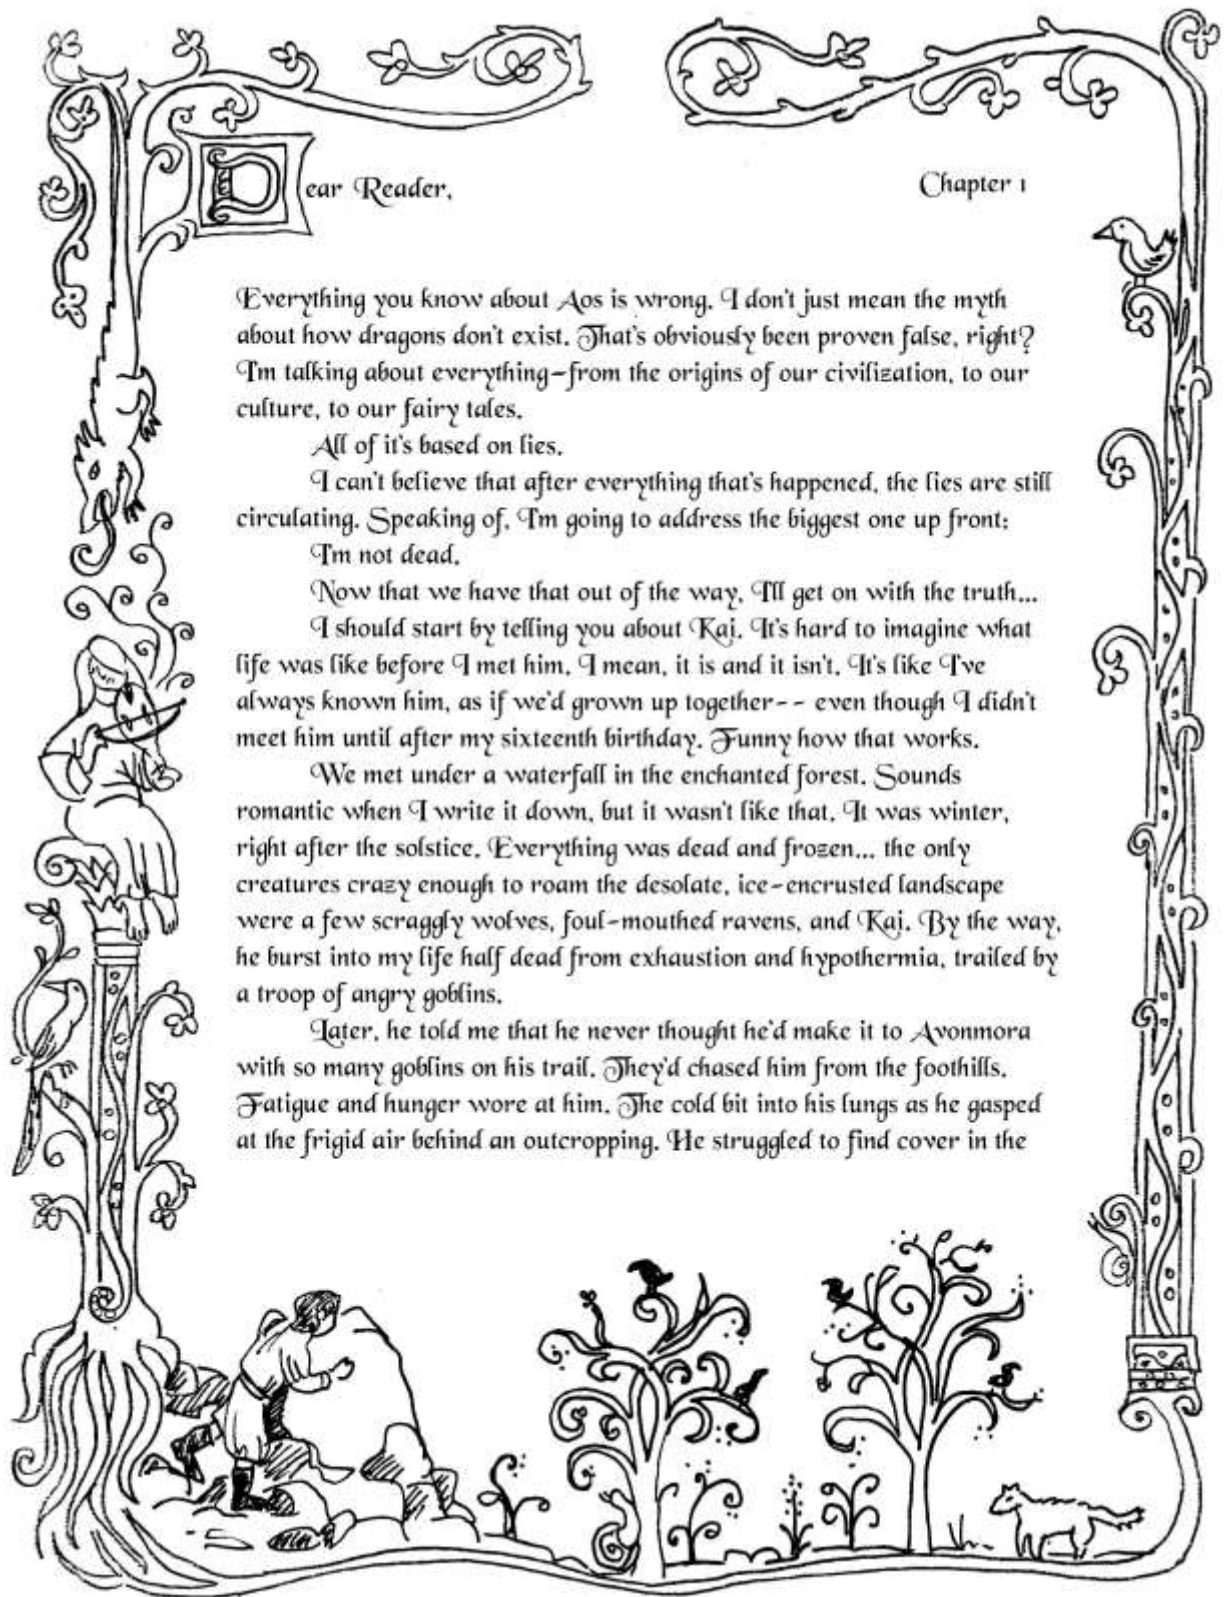 Dear Reader,
Chapter 1
Everything you know about Aos is wrong. I don't just mean the myth
about how dragons don't exist. That's obviously been proven false, right?
I'm talking about everything-from the origins of our civilization, to our
culture, to our fairy tales.
All of it's based on lies.
I can't believe that after everything that's happened, the lies are still
circulating. Speaking of, I'm going to address the biggest one up front:
I'm not dead.
Now that we have that out of the way, I'll get on with the truth...
I should start by telling you about Kai. It's hard to imagine what
life was like before I met him. I mean, it is and it isn't. It's like I've
always known him, as if we'd grown up together-- even though I didn't
meet him until after my sixteenth birthday. Funny how that works.
We met under a waterfall in the enchanted forest. Sounds
romantic when I write it down, but it wasn't like that. It was winter,
right after the solstice. Everything was dead and frozen... the only
creatures crazy enough to roam the desolate, ice-encrusted landscape
were a few scraggly wolves, foul-mouthed ravens, and Kai. By the way,
he burst into my life half dead from exhaustion and hypothermia, trailed by
a troop of angry goblins.
Later, he told me that he never thought he'd make it to Avonmora
with so many goblins on his trail. They'd chased him from the foothills.
Fatigue and hunger wore at him. The cold bit into his lungs as he gasped
at the frigid air behind an outcropping. He struggled to find cover in the